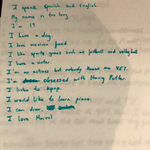 I speak Spanish and English.
My name is too long.
I'm 17
I have a dog.
I love mexican food.
I like sports games such as football and volleyball
I have a sister.
I'm an actress but nobody knows me YET.
I'm obsessed with Harry Potter.
I listen to kpop.
I would like to learn piano.
I can draw.
I love Marvel